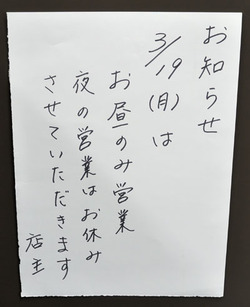 お知らせ
3/19(月)は
お昼のみ営業
夜の営業はお休み
させていただきます
店主